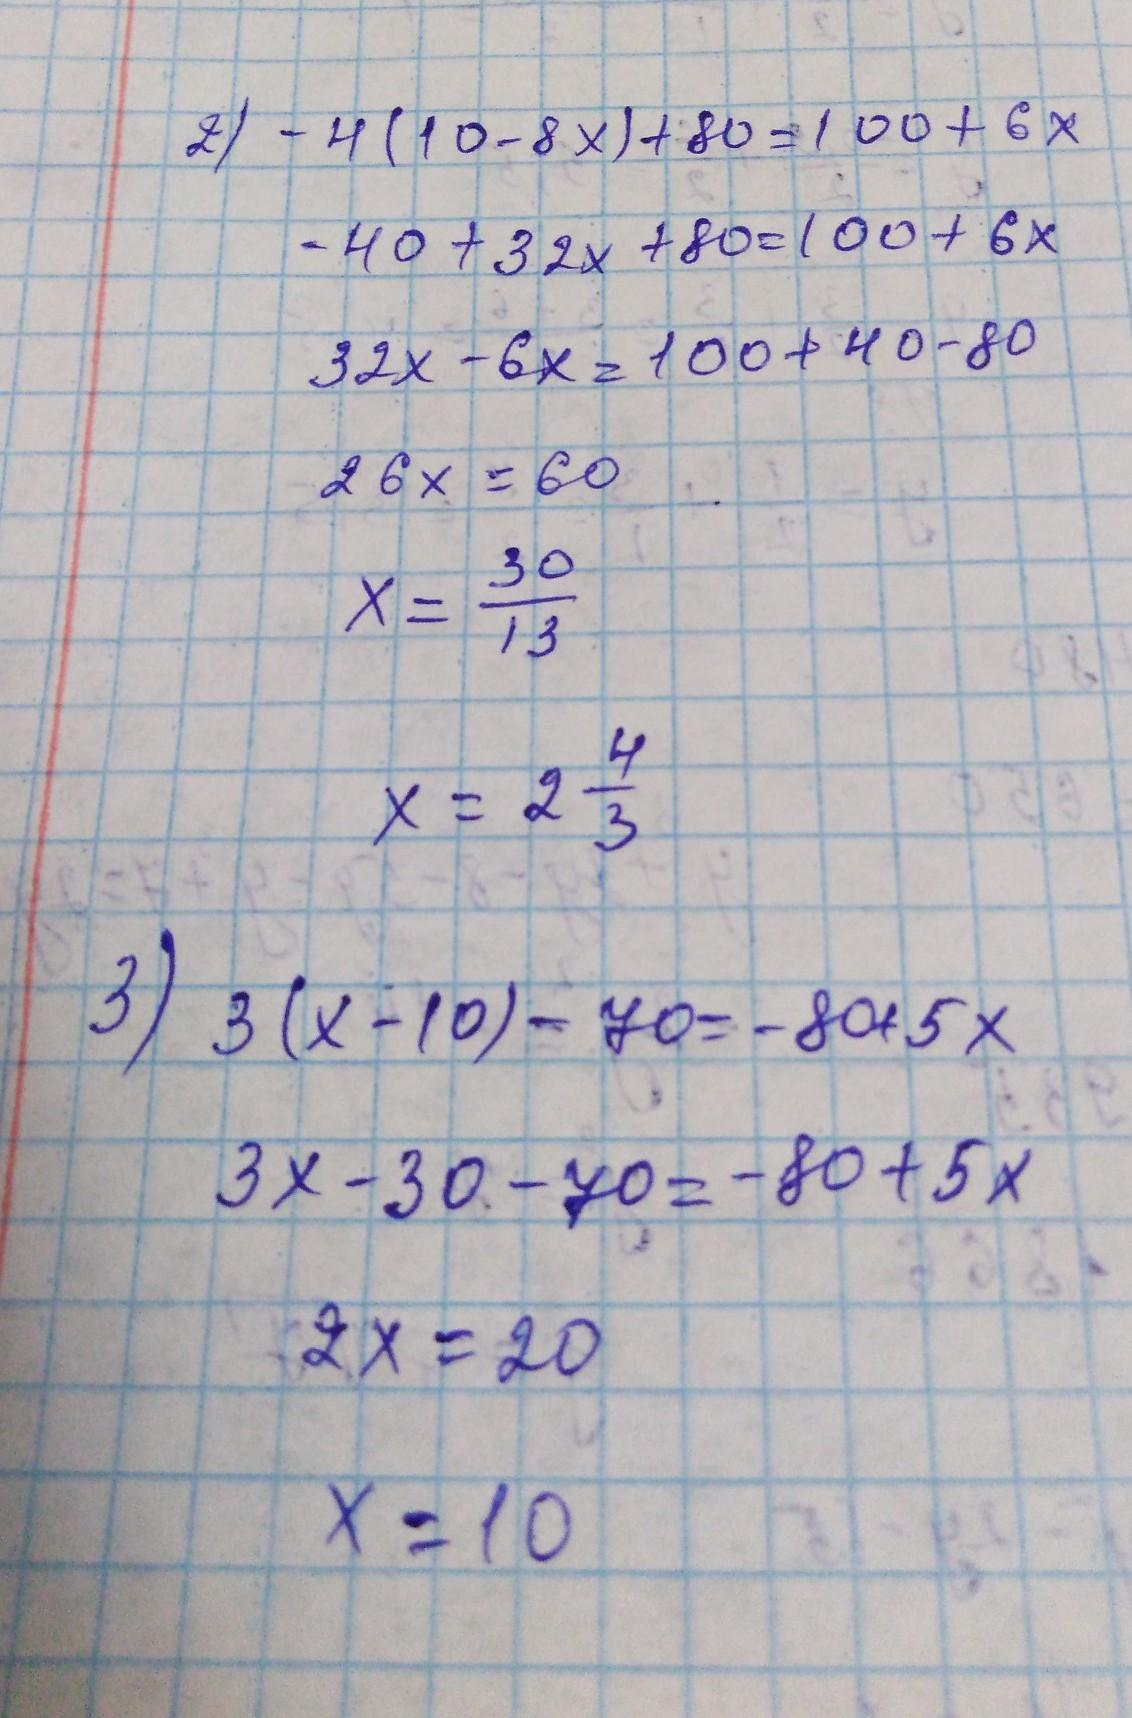 2) -4(10-8x)+80=100+6x
-40+32x+80=100+6x
32x-6x=100+40-80
26x=60
x=30/13
x=2 4/3
3) 3(x-10)-70=-80+5x
3x-30-70=-80+5x
2x=20
x=10